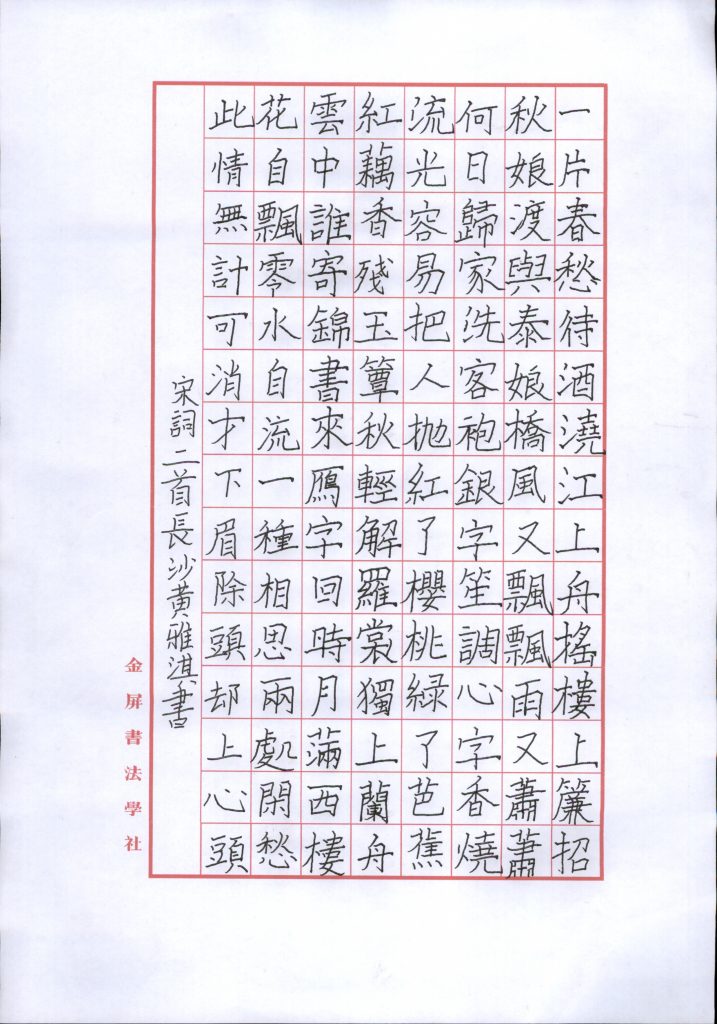 一片春愁待酒澆江上舟搖樓上簾招
秋娘渡與泰娘橋風又飄飄雨又蕭蕭
何日歸家洗客袍銀字笙調心字香燒
流光容易把人拋紅了櫻桃綠了芭蕉
紅藕香殘玉簟秋輕解羅裳獨上蘭舟
雲中誰寄錦書來鴈字回時月滿西樓
花自飄零水自流一種相思兩處閑愁
此情無計可消才下眉除頭却上心頭
宋詞二首長沙黃雅淇書
金屏書法學社